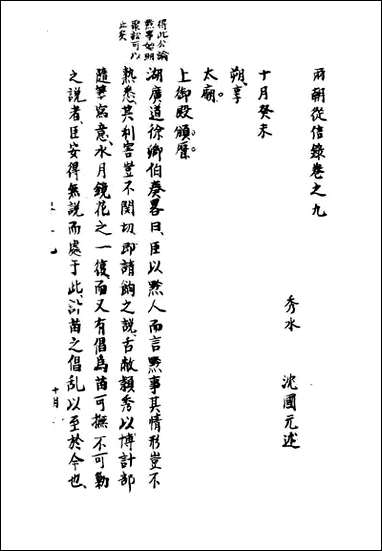 兩朝從信錄卷之九
秀水 沈國元述
十月癸未
朔享
太廟。
上御殿頒曆。
湖廣道徐卿伯奏畧曰臣以黔人而言黔事其情形豈不
熟悉其利害豈不関切即請餉之說舌敝頴秀以博計部
隨筆寫意水月鏡花之一復而又有倡為苗可撫不可勦
之說者臣安得無說而處于此計苗之倡乱以至於今也
得此公論
黔事始明
聚訟可以
止矣
十月